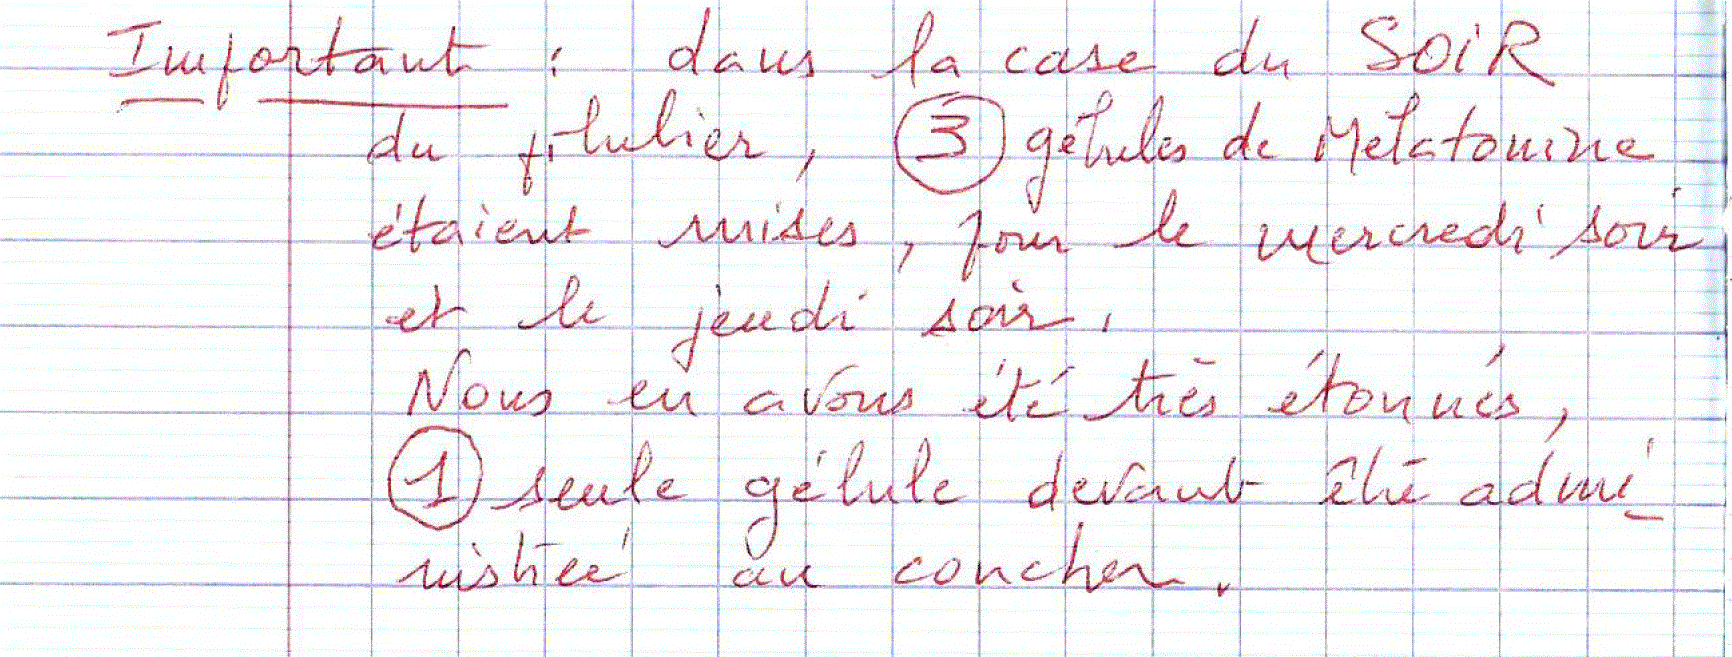 Important : dans la case du SOIR
du pilulier, 3 gélules de Mélatonine
étaient mises, pour le mercredi soir
et le jeudi soir.
Nous en avons été très étonnés,
1 seule gélule devant être admi-
nistrée au coucher.